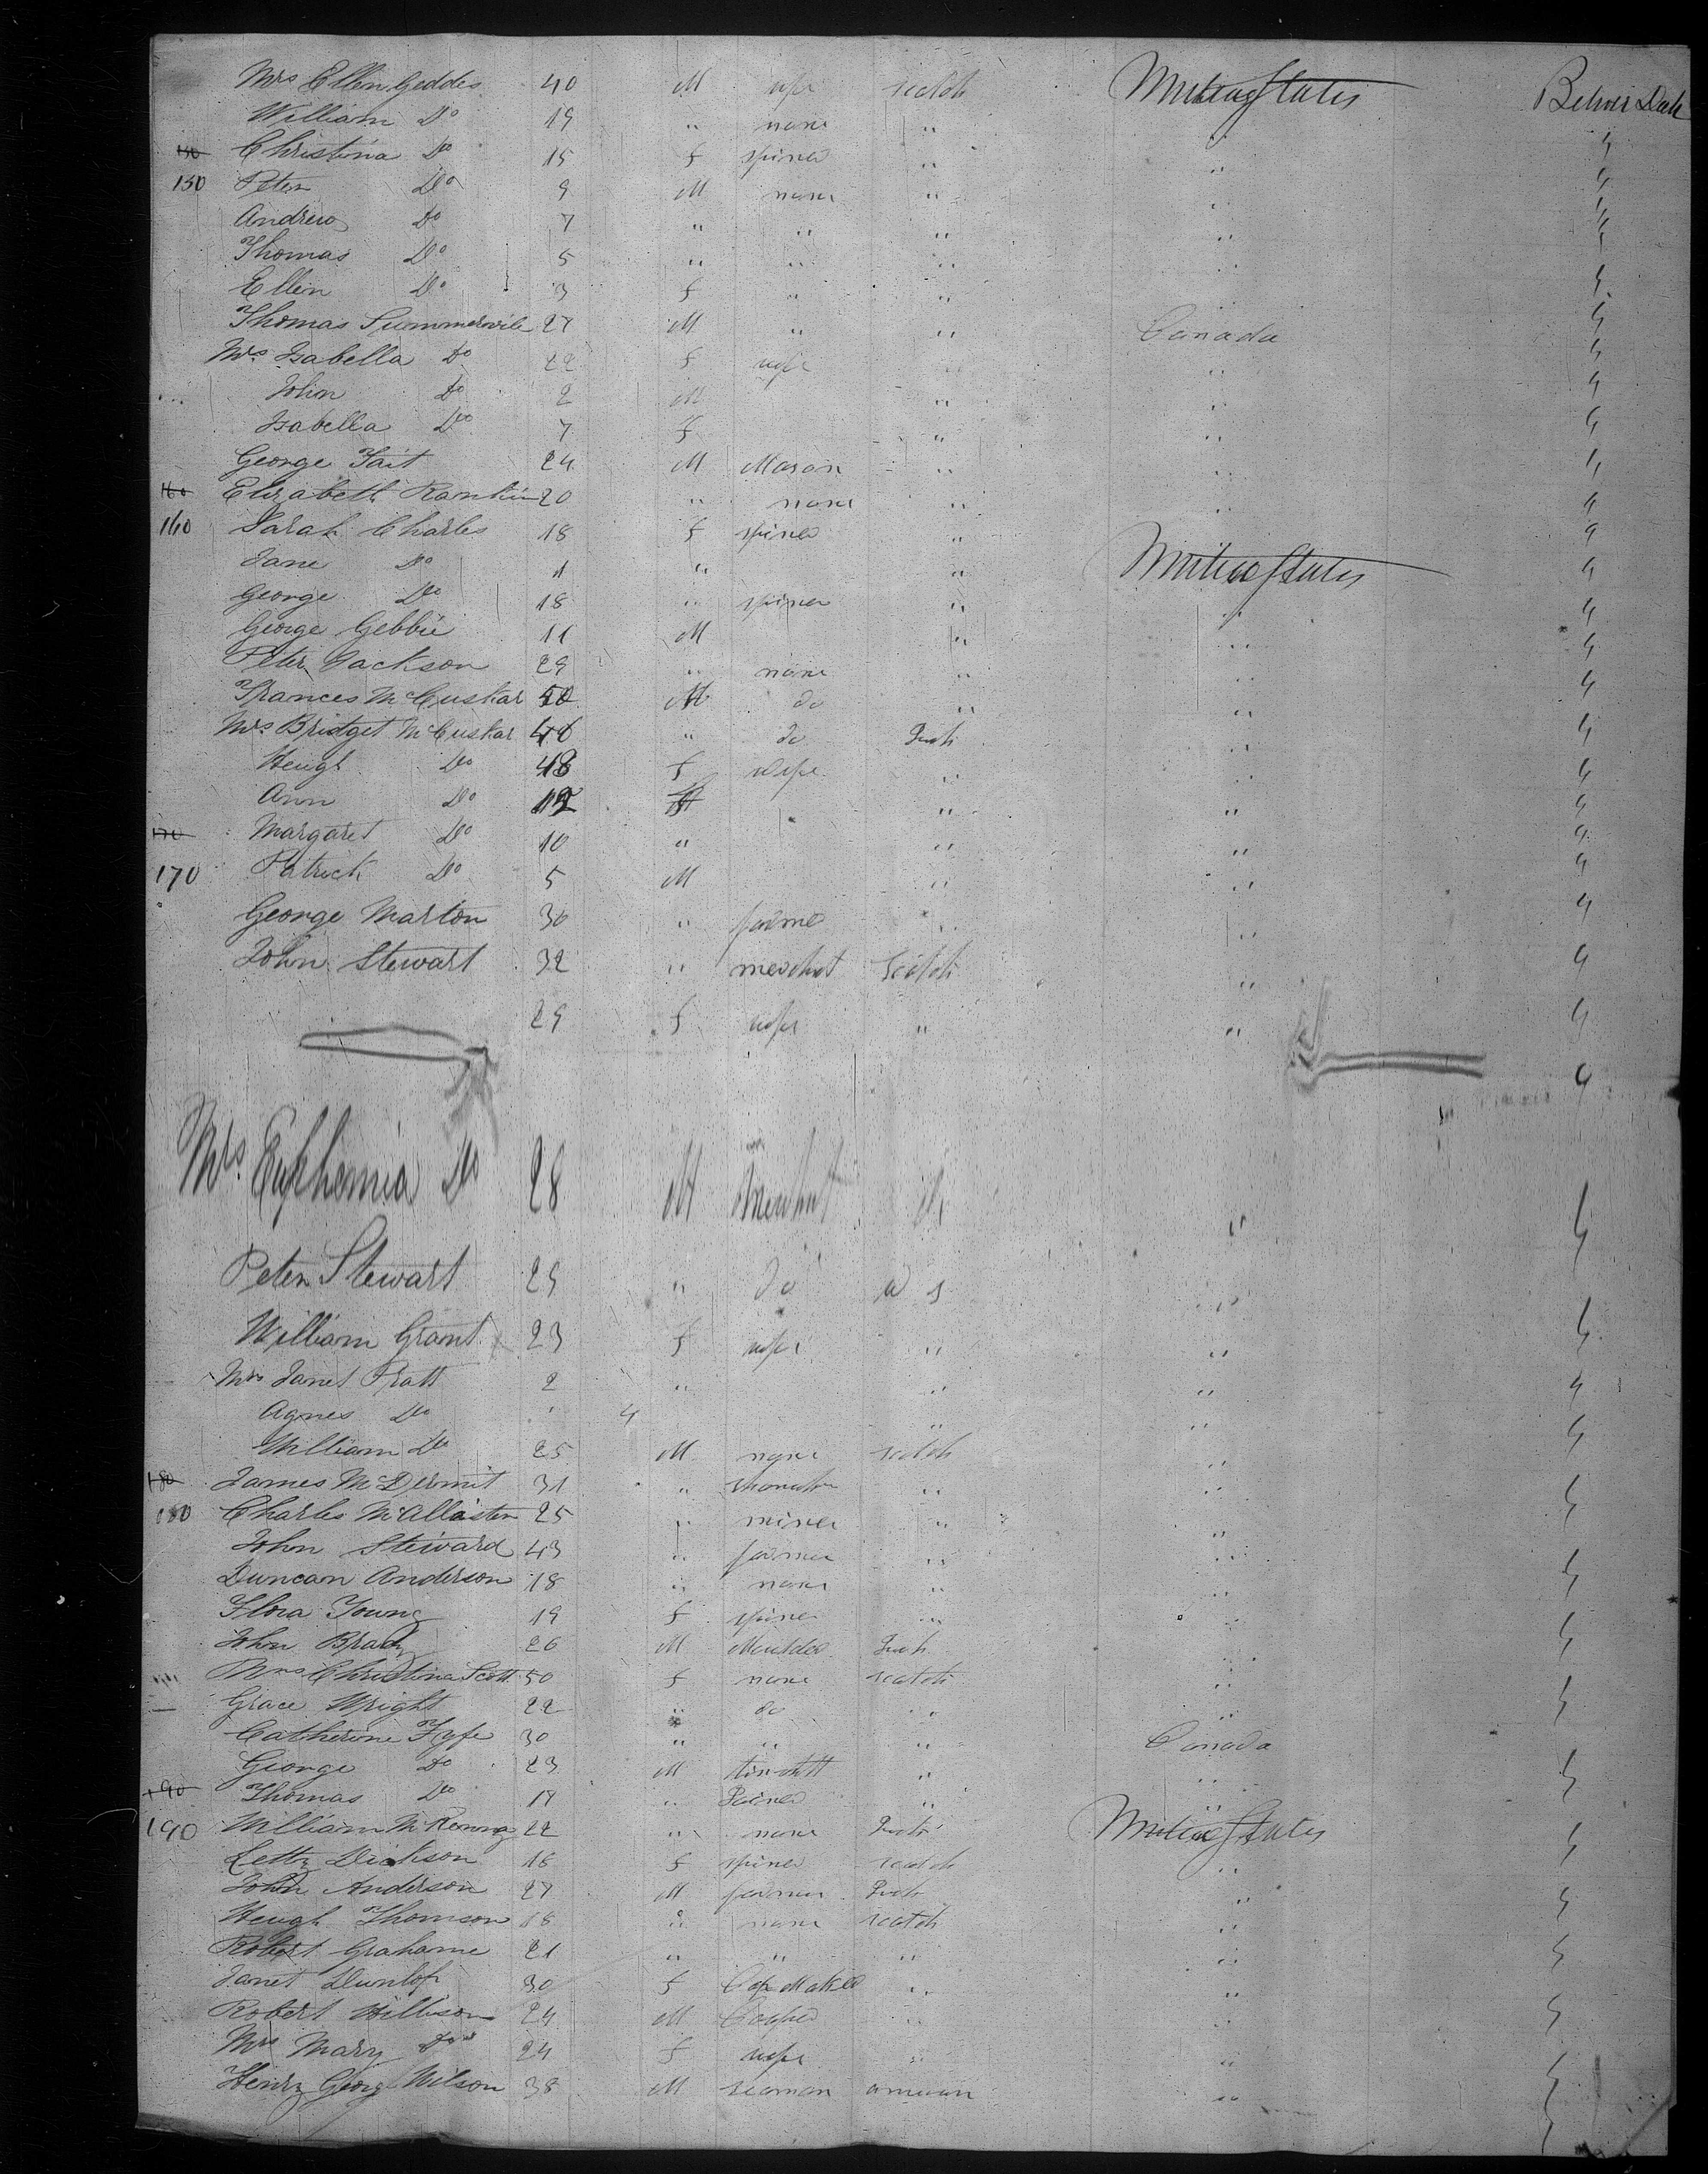 Mrs Ellen Geddes 40 M wife scotch United States Betwix Deck
William Do 19 " none " " 4
150 Christina Do 15 f spiner " " 4
150 Peter Do 9 M none " " 4
Andrew Do 7 " " " " 4
Thomas Do 5 " " " " 4
Ellen Do 3 f " " " 4
Thomas Summervile 27 M " " Canada 4
Mrs Isabella Do 22 f wife " 4
John Do 2 M " " 4
Isabella Do 7 f " " 4
George Tait 24 M Mason " " 4
160 Elizabeth Rankin 20 " none " " 4
160 Sarah Charles 18 f spiner " 4
Jane Do 1 " " United States 4
George Do 18 " spiner " " 4
George Gebbie 11 M " " 4
Peter Jackson 29 " none " " 4
Frances McCuskar M do " "
Mrs Bridget McCuskar " do Irish " 4
Heugh Do 48 f wife " " 4
Ann Do 12 f " " 4
170 Margaret Do 10 " " " 4
170 Patrick Do 5 M " " 4
George Marton 30 " farmer " " 4
John Stewart 32 " merchnt Scotch " 4
29 f wife " " 4
4
Mrs. Euphemia Do 28 M merchnt " 4
Peter Stewart 29 " do "
William Grant 23 f wife " " 4
Mrs Janet Pratt 2 " " " 4
Agnes Do " " " 4
William Do 25 M none scotch "
180 James McDermit 31 " " " 4
180 Charles McAllaster 25 " miner " "
John Steward 43 " farmer " " 4
Duncan Anderson 18 " none " "
Flora Young 19 f spiner " " 4
John Brady 26 M Moulder Irish "
Mrs Christina Scott 50 f none scotch "
Grace Wright 22 " do " " 4
Catherine Fyfe 30 " " " Canada
George Do 23 M " " 4
190 Thomas Do 17 " " "
190 William McKenna 22 " none Irish United States 4
Letty Dickson 18 f spiner scotch "
John Anderson 27 M farmer Irish " 4
Heugh Thomson 18 " none scotch "
Robert Grahame 21 " " " " 4
Janet Dunlop 30 f Cap Maker " "
Robert Willison 24 M Cooper " " 4
Mrs Mary Do 24 f wife " " 4
Henry Georg Wilson 38 M seaman american " 4